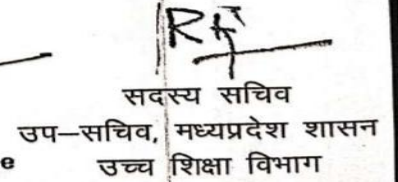 सदस्य सचिव
उप–सचिव, मध्यप्रदेश शासन
e उच्च शिक्षा विभाग